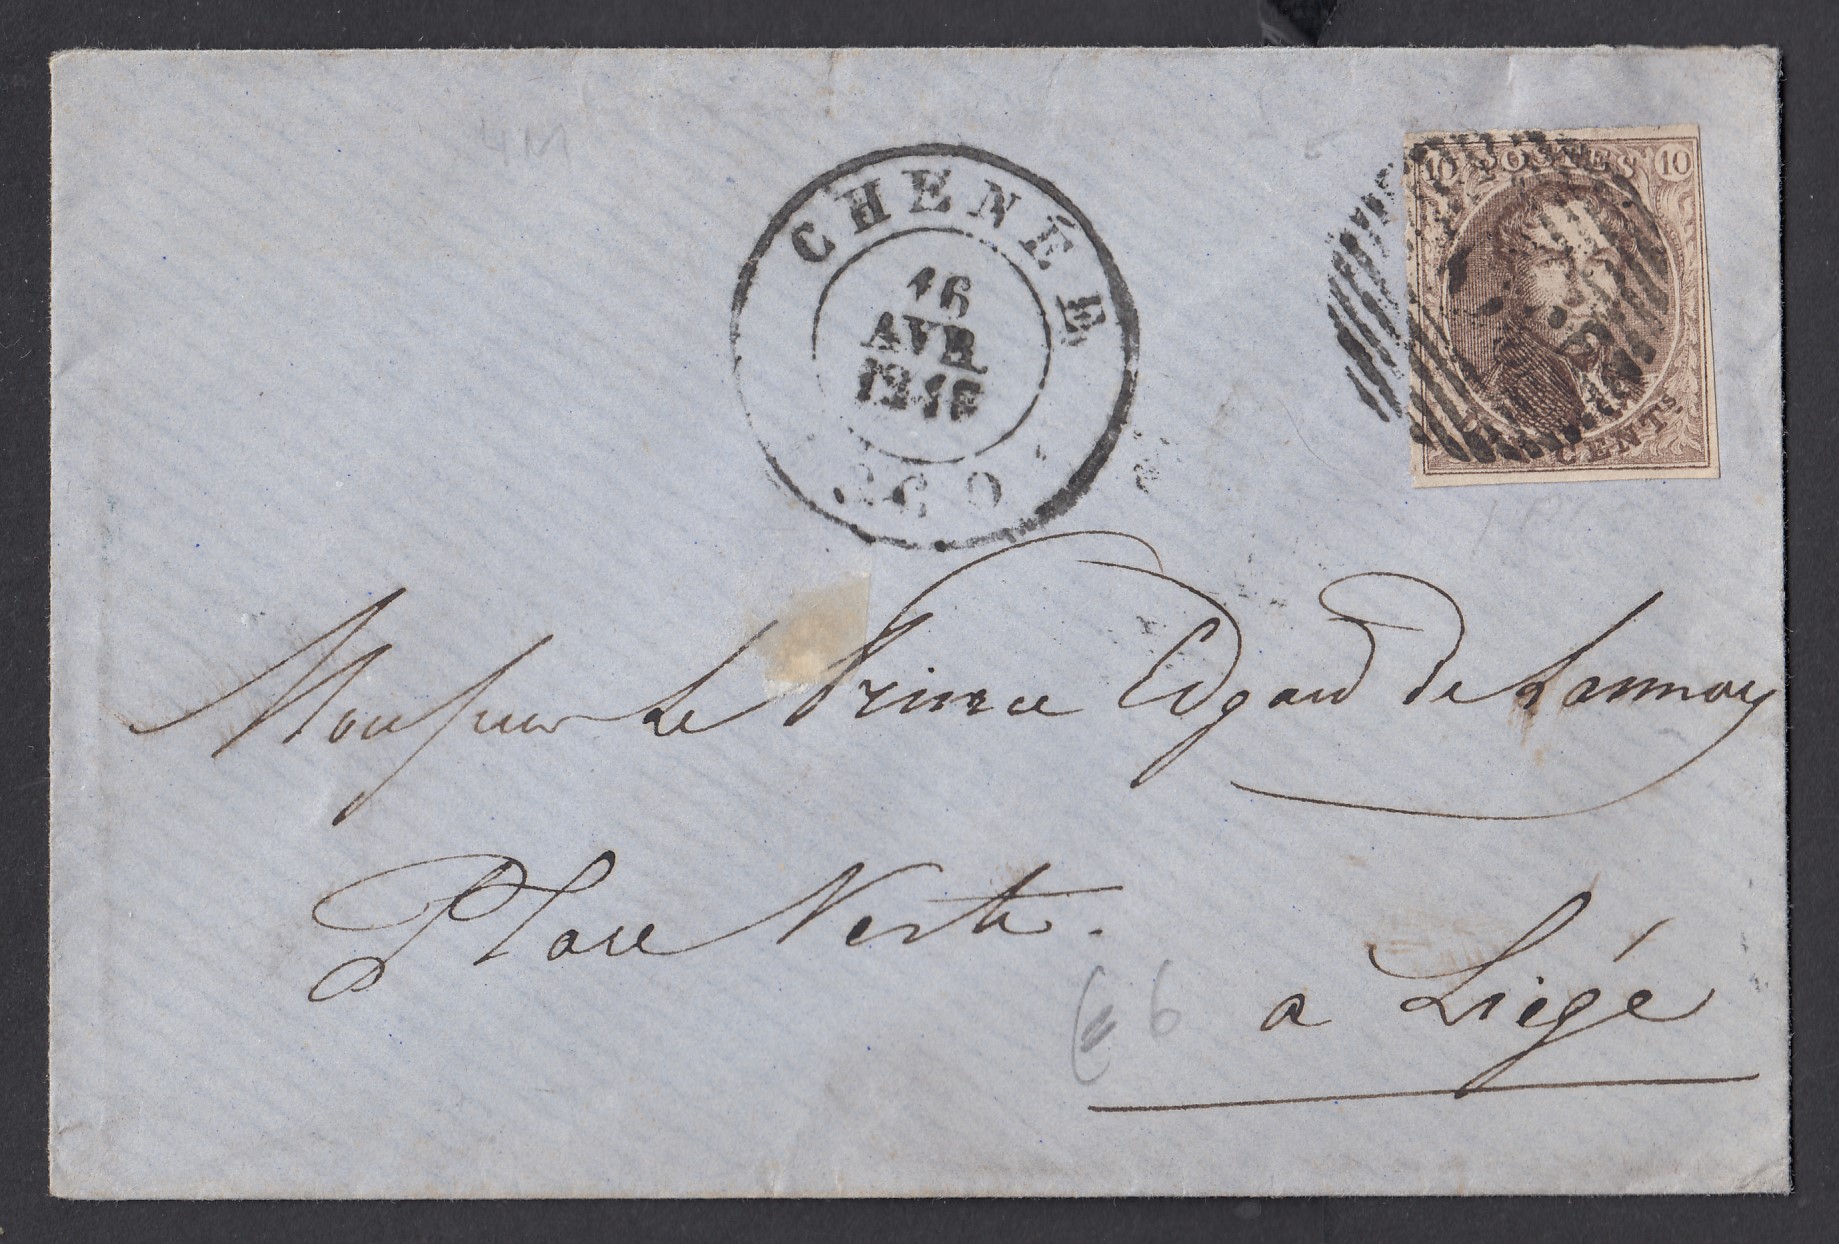 4M
CHENÉE
16
AVR
10 POSTES 10
CENTS.
Monsieur Le Prince Edgard de Lannoy
Place Verte.
6
a Liégé